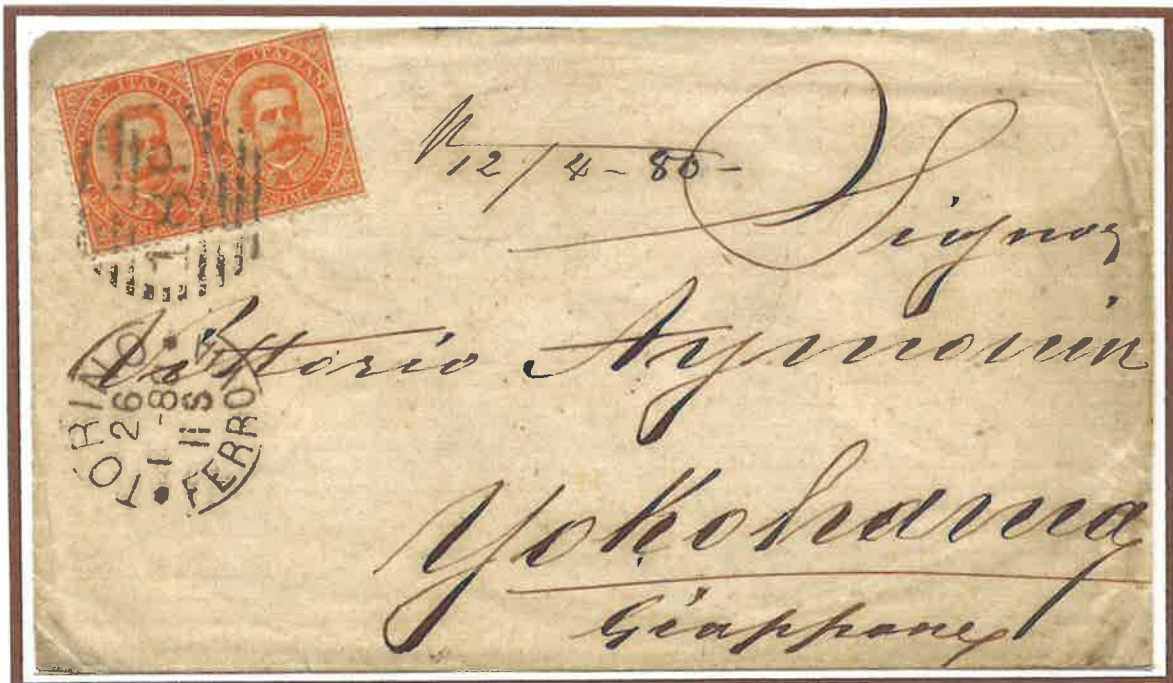 POSTE ITALIANE
POSTE ITALIANE
12/4-80-
Signor
Vittorio Aymonin
Yokohama
Giappone
189
TORINO
26
1-80
11 S
FERROVIA